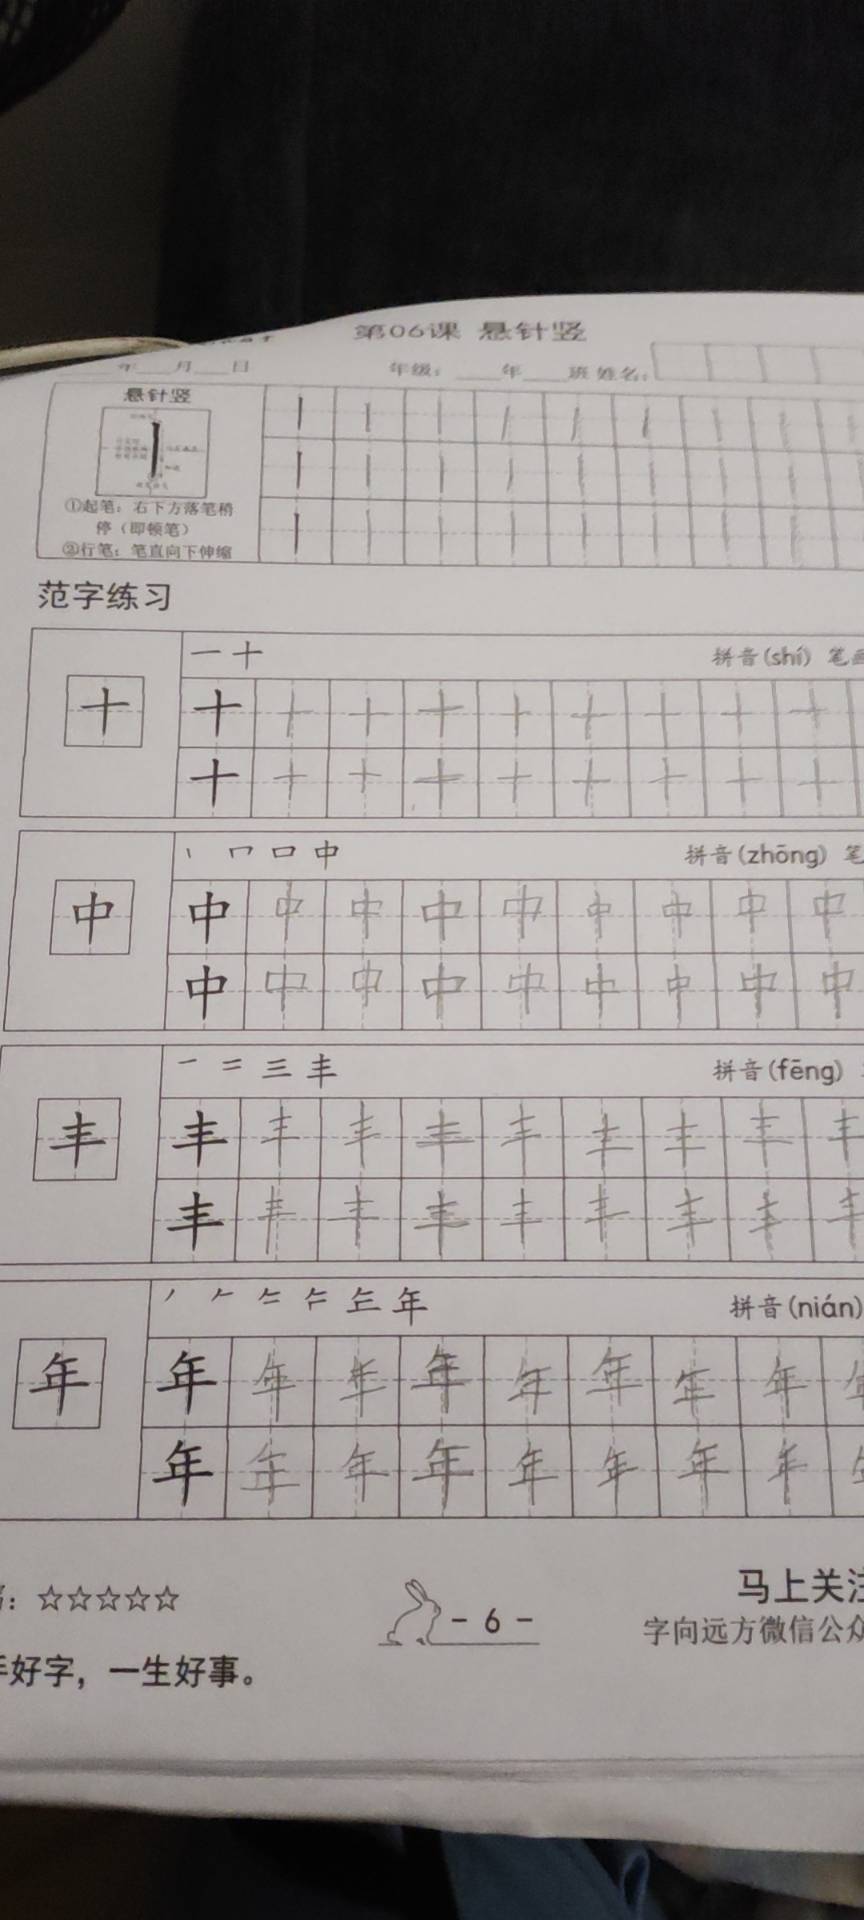 第06课 悬针竖
年___月___日 年级：____年____班 姓名：
悬针竖
①起笔：右下方落笔稍
停（即顿笔）
②行笔：笔直向下伸缩
范字练习
一 十 拼音(shí) 笔画
十 十 十 十 十 十 十 十 十 十
十 十 十 十 十 十 十 十 十
丨 冂 口 中 拼音(zhōng) 笔
中 中 中 中 中 中 中 中 中 中
中 中 中 中 中 中 中 中 中
一 二 三 丰 拼音(fēng)
丰 丰 丰 丰 丰 丰 丰 丰 丰 丰
丰 丰 丰 丰 丰 丰 丰 丰 丰
年 拼音(nián)
年 年 年 年 年 年 年 年 年
年 年 年 年 年 年 年 年
：☆☆☆☆☆
- 6 -
马上关注
字向远方微信公众
手好字，一生好事。